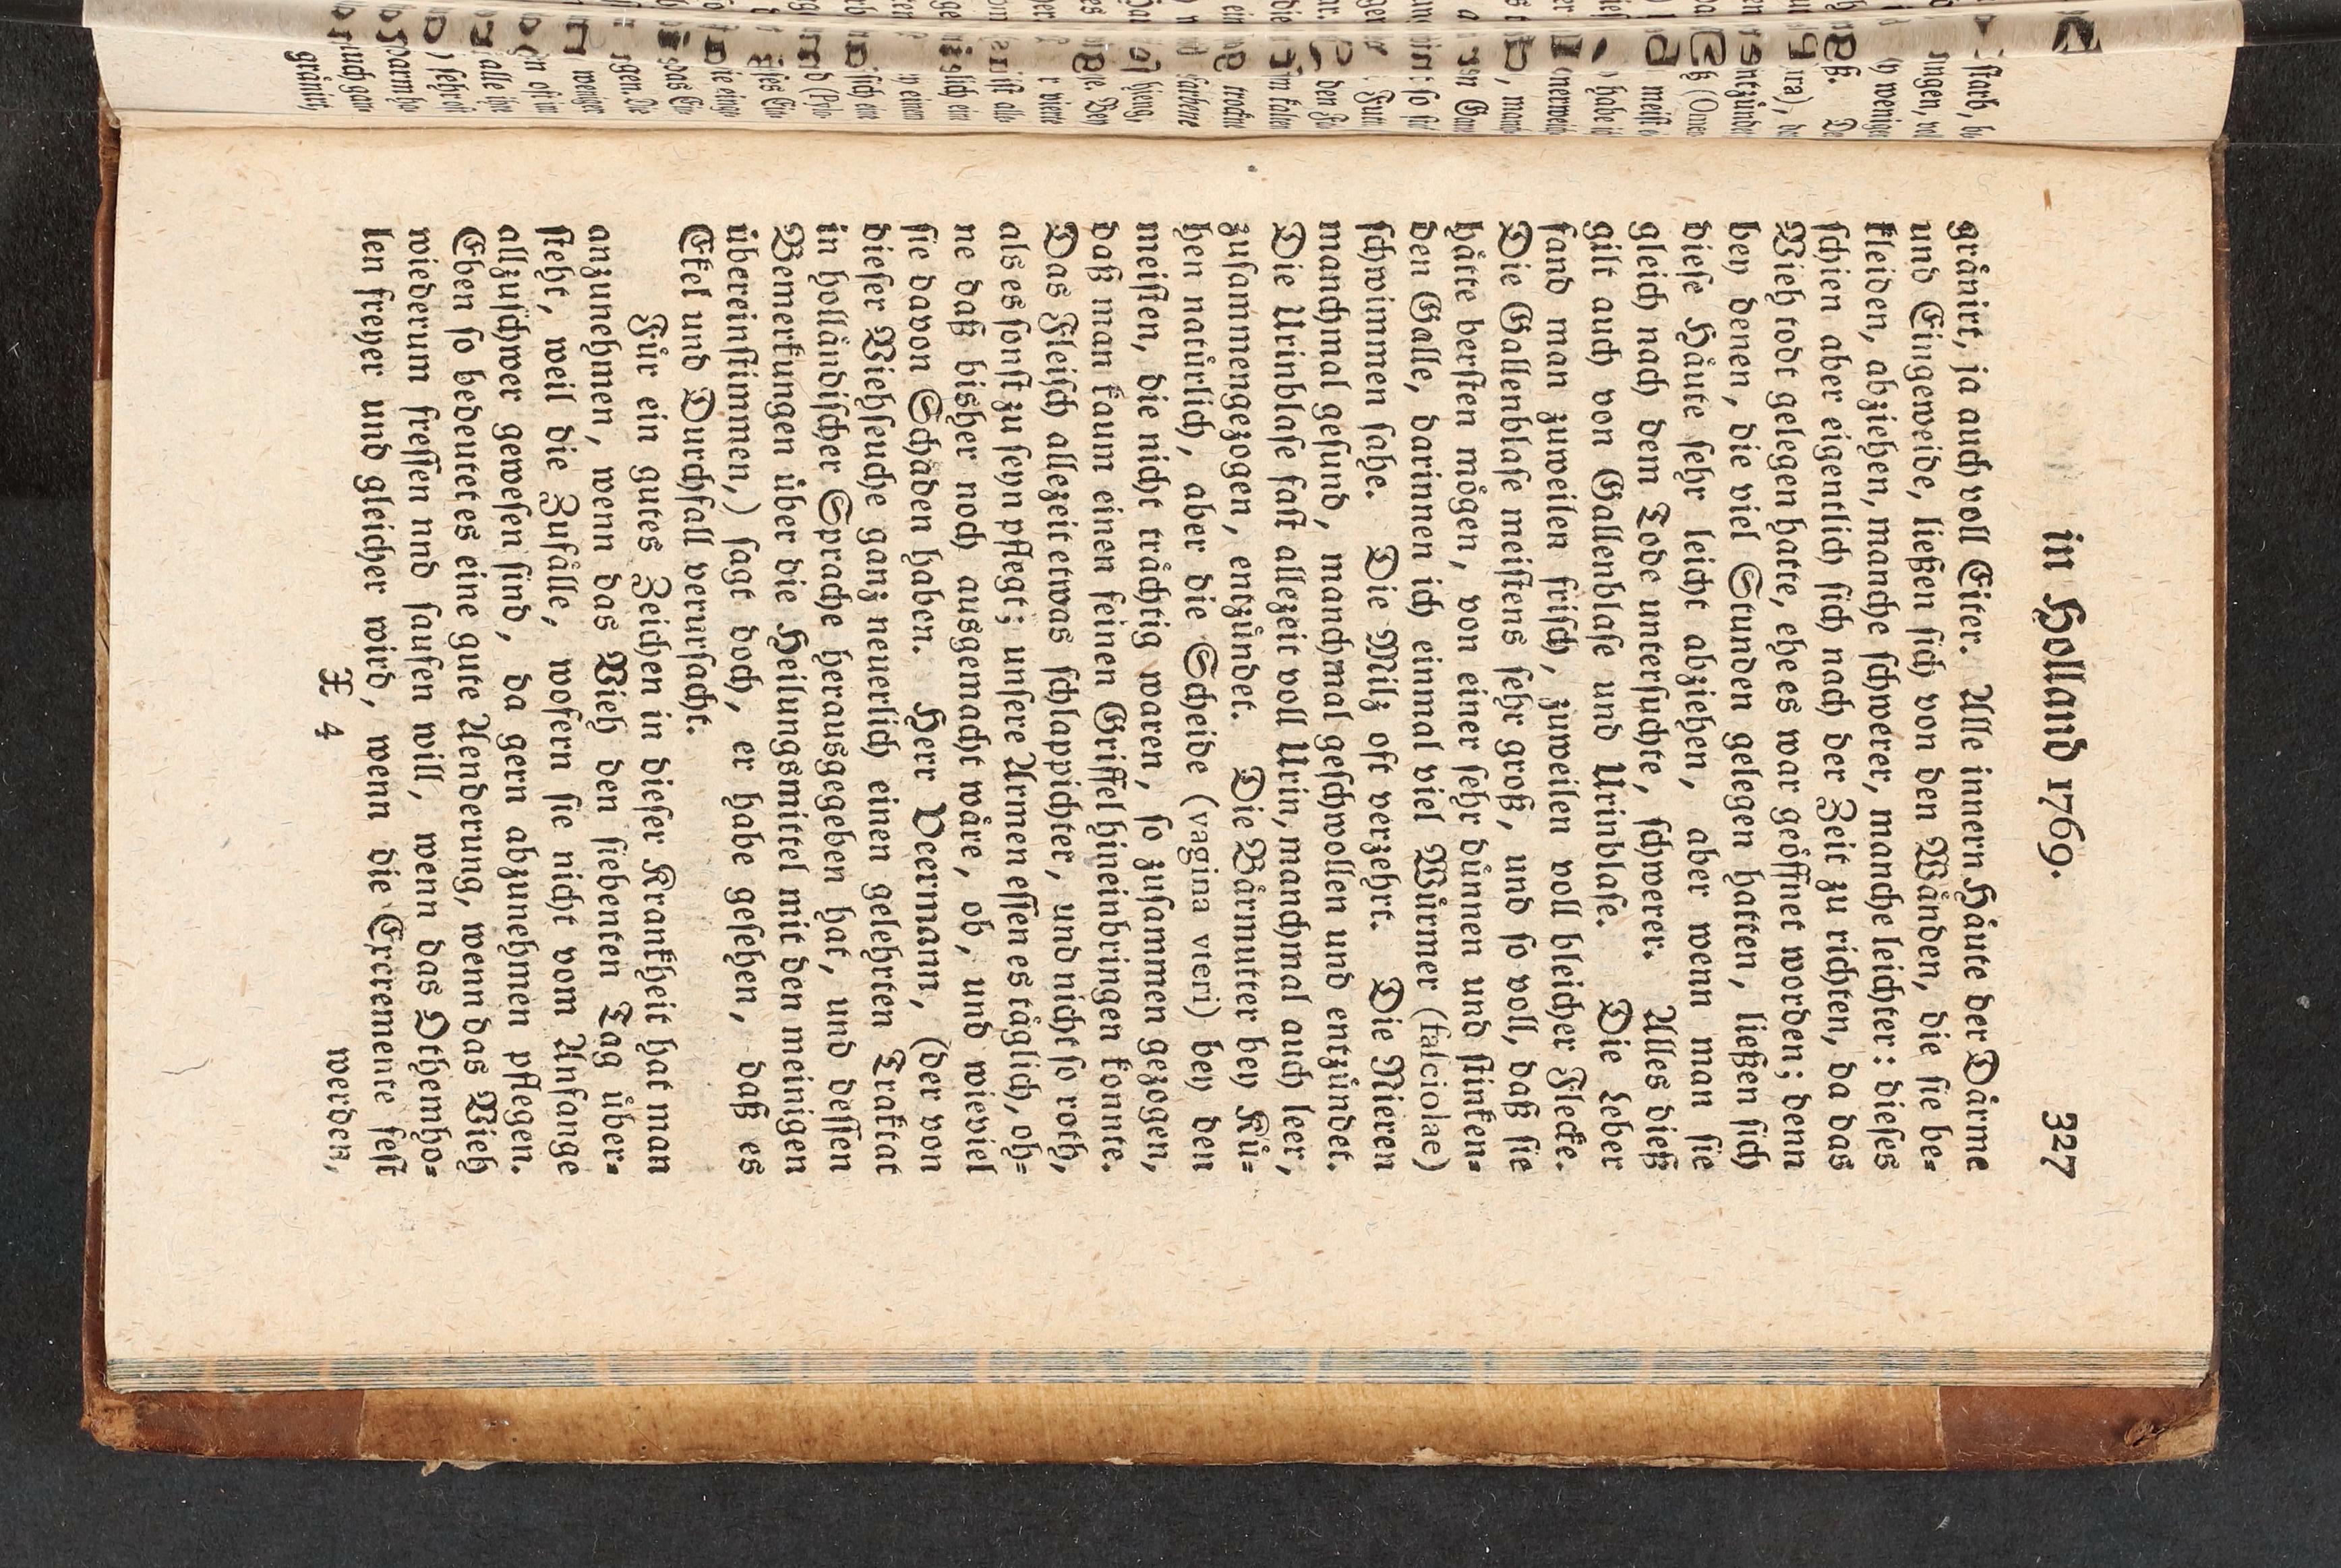 in Holland 1769. 327
gränirt, ja auch voll Eiter. Alle innern Häute der Därme
und Eingeweide, ließen sich von den Wänden, die sie be-
kleiden, abziehen, manche schwerer, manche leichter: dieses
schien aber eigentlich sich nach der Zeit zu richten, da das
Vieh todt gelegen hatte, ehe es war geöffnet worden; denn
bey denen, die viel Stunden gelegen hatten, ließen sich
diese Häute sehr leicht abziehen, aber wenn man sie
gleich nach dem Tode untersuchte, schwerer. Alles dieß
gilt auch von Gallenblase und Urinblase. Die Leber
fand man zuweilen frisch, zuweilen voll bleicher Flecke.
Die Gallenblase meistens sehr groß, und so voll, daß sie
hätte bersten mögen, von einer sehr dünnen und stinken-
den Galle, darinnen ich einmal viel Würmer (fasciolae)
schwimmen sahe. Die Milz oft verzehrt. Die Nieren
manchmal gesund, manchmal geschwollen und entzündet.
Die Urinblase fast allezeit voll Urin, manchmal auch leer,
zusammengezogen, entzündet. Die Bärmutter bey Kü-
hen natürlich, aber die Scheide (vagina vteri) bey den
meisten, die nicht trächtig waren, so zusammen gezogen,
daß man kaum einen feinen Griffel hineinbringen konnte.
Das Fleisch allezeit etwas schlappichter, und nicht so roth,
als es sonst zu seyn pflegt; unsere Armen essen es täglich, oh-
ne daß bisher noch ausgemacht wäre, ob, und wieviel
sie davon Schaden haben. Herr Veermann, (der von
dieser Viehseuche ganz neuerlich einen gelehrten Traktat
in holländischer Sprache herausgegeben hat, und dessen
Bemerkungen über die Heilungsmittel mit den meinigen
übereinstimmen,) sagt doch, er habe gesehen, daß es
Ekel und Durchfall verursacht.
Für ein gutes Zeichen in dieser Krankheit hat man
anzunehmen, wenn das Vieh den siebenten Tag über-
steht, weil die Zufälle, wofern sie nicht vom Anfange
allzuschwer gewesen sind, da gern abzunehmen pflegen.
Eben so bedeutet es eine gute Aenderung, wenn das Vieh
wiederum fressen und saufen will, wenn das Othemho-
len freyer und gleicher wird, wenn die Excremente fest
X 4 werden,